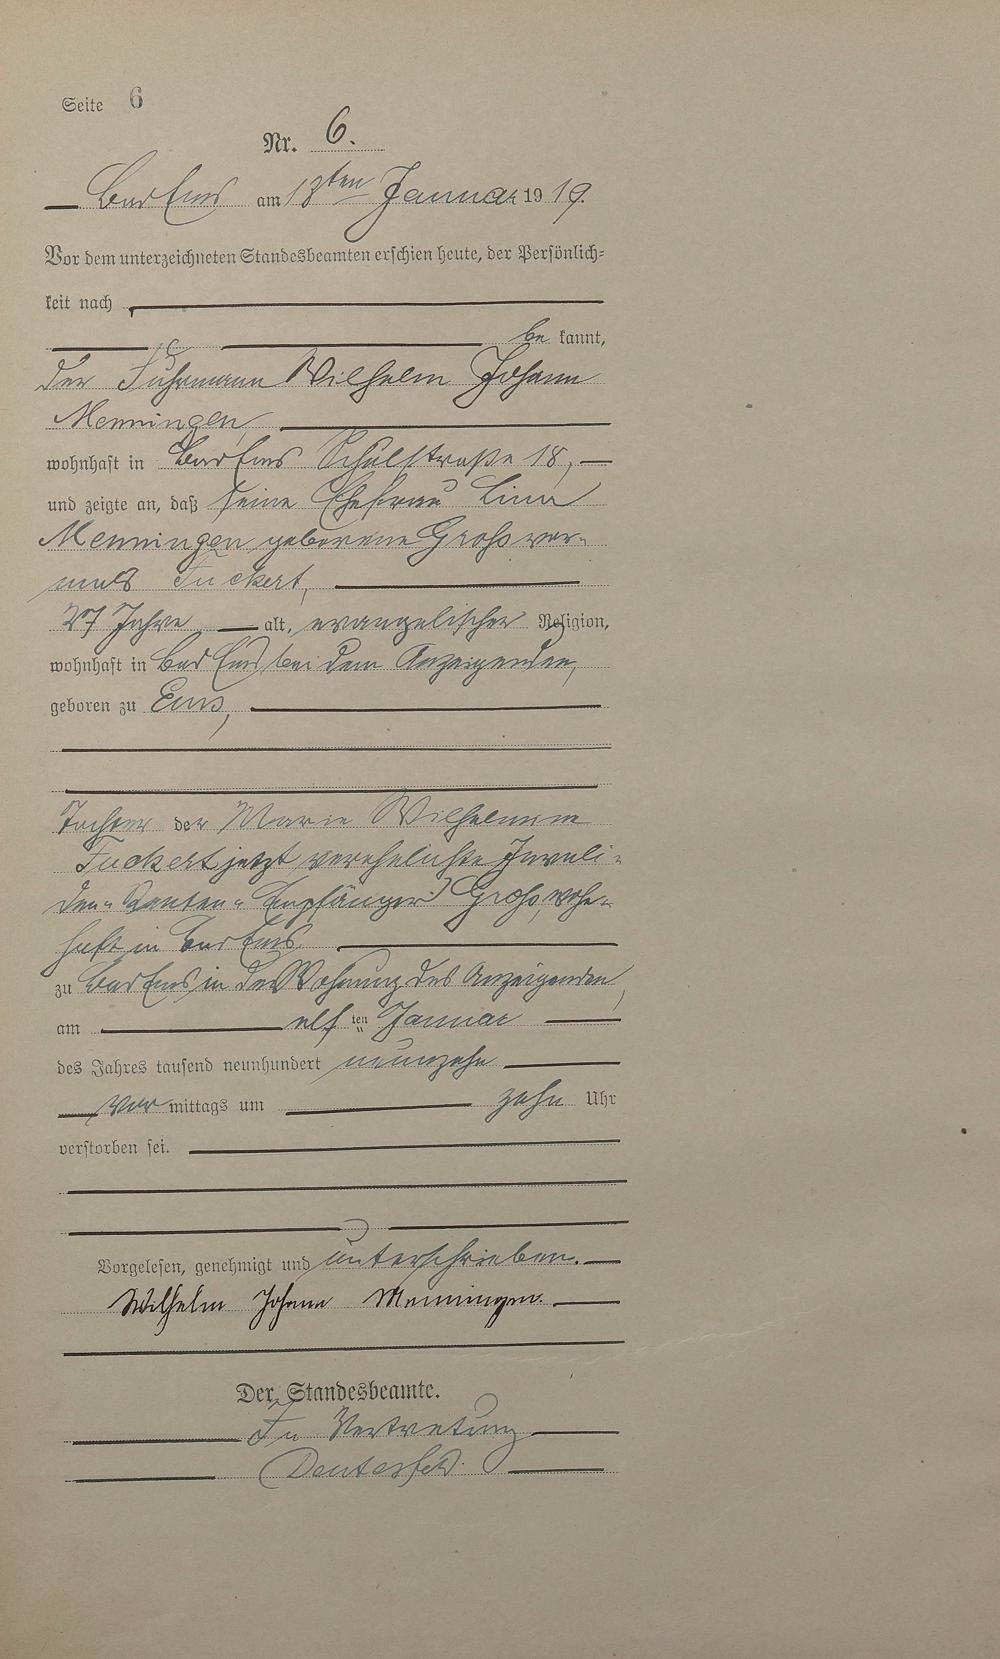 Seite 6
Nr. 6.
Bad Ems am 13ten Januar 1919.
Vor dem unterzeichneten Standesbeamten erschien heute, der Persönlich-
keit nach
be kannt,
der Fuhrmann Wilhelm Johann
Menningen,
wohnhaft in Bad Ems Schulstraße 18,
und zeigte an, daß seine Ehefrau Lina
Menningen geborene Groß vor-
mals Fuckert,
27 Jahre alt, evangelischer Religion,
wohnhaft in Bad Ems bei dem Anzeigenden,
geboren zu Ems,
Tochter der Marie Wilhelmine
Fuckert jetzt verehelichte Invali-
den-Renten-Empfänger Groß, wohn-
haft in Bad Ems
zu Bad Ems in der Wohnung des Anzeigenden,
am elf ten Januar
des Jahres tausend neunhundert neunzehn
vor mittags um zehn Uhr
verstorben sei.
Vorgelesen, genehmigt und unterschrieben.
Wilhelm Johann Menningen.
Der Standesbeamte.
In Vertretung